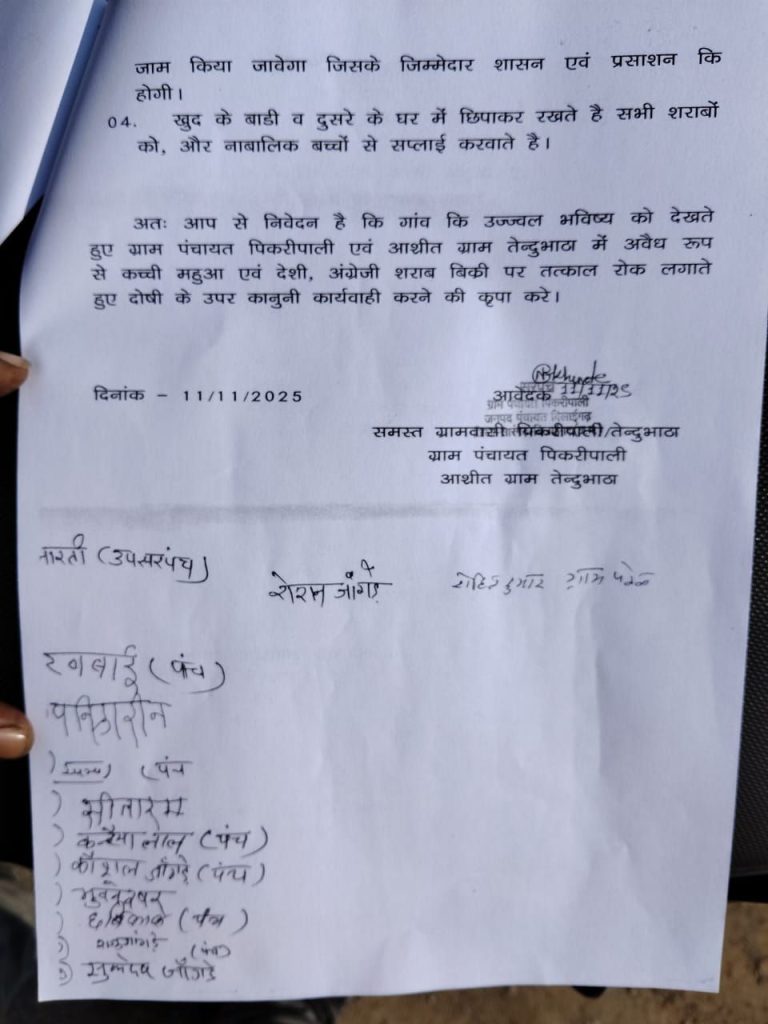 जाम किया जावेगा जिसके जिम्मेदार शासन एवं प्रसाशन कि
होगी।
04. खुद के बाडी व दुसरे के घर में छिपाकर रखते है सभी शराबों
को, और नाबालिक बच्चों से सप्लाई करवाते है।
अतः आप से निवेदन है कि गांव कि उज्ज्वल भविष्य को देखते
हुए ग्राम पंचायत पिकरीपाली एवं आशीत ग्राम तेन्दुभाठा में अवैध रूप
से कच्ची महुआ एवं देशी, अंग्रेजी शराब बिकी पर तत्काल रोक लगाते
हुए दोषी के उपर कानुनी कार्यवाही करने की कृपा करे।
दिनांक - 11/11/2025
आवेदक
सरपंच
ग्राम पंचायत पिकरीपाली
जनपद पंचायत बिलाईगढ़
समस्त ग्रामवासी पिकरीपाली/तेन्दुभाठा
ग्राम पंचायत पिकरीपाली
आशीत ग्राम तेन्दुभाठा
(उपसरपंच)
जाँगड़े
कुमार ग्राम
(पंच)
(पंच
सीताराम
लाल (पंच)
कौशल जाँगड़े (पंच)
(पंच)
(पंच)
जाँगड़े